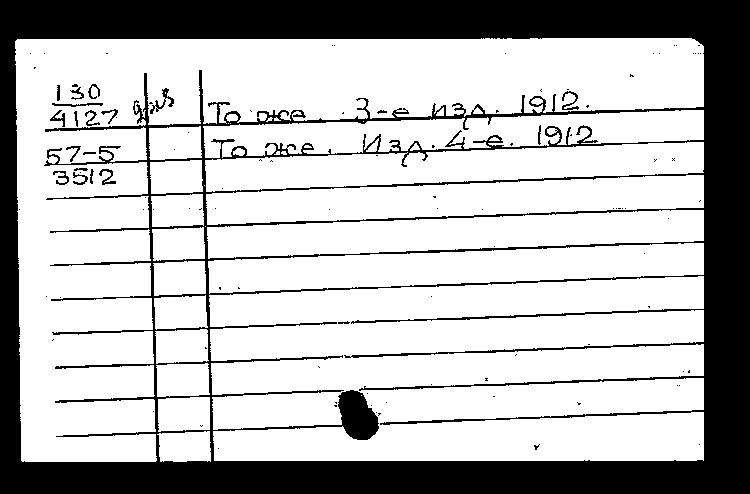 130
4127 То же. 3-е изд. 1912.
57-5 То же. Изд. 4-е. 1912
3512